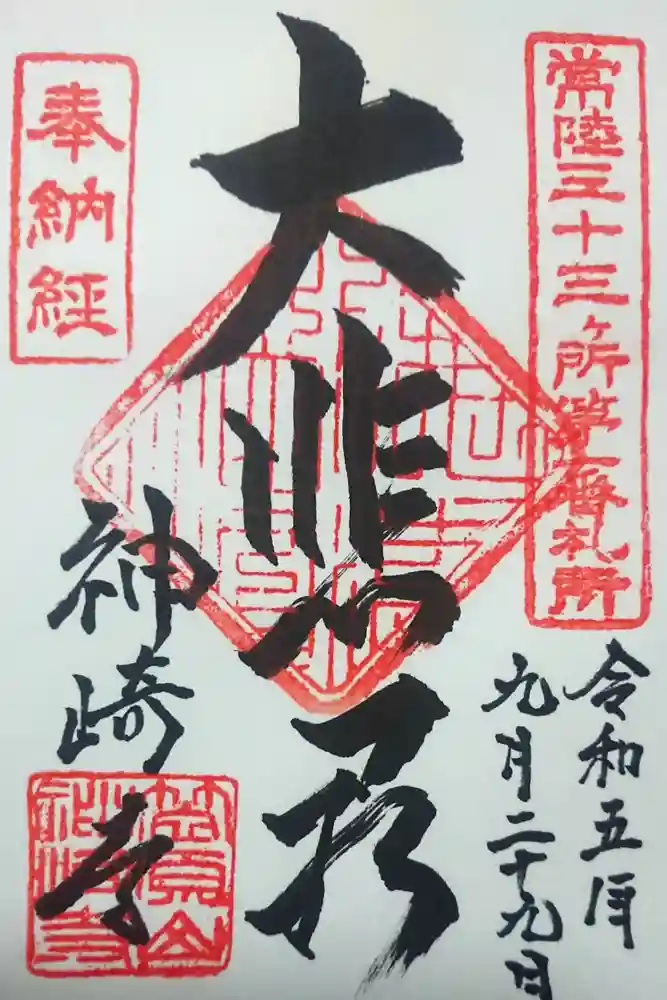 常陸三十三ヶ所第二番札所
令和五年
九月二十九日
大悲
奉納経
神崎寺